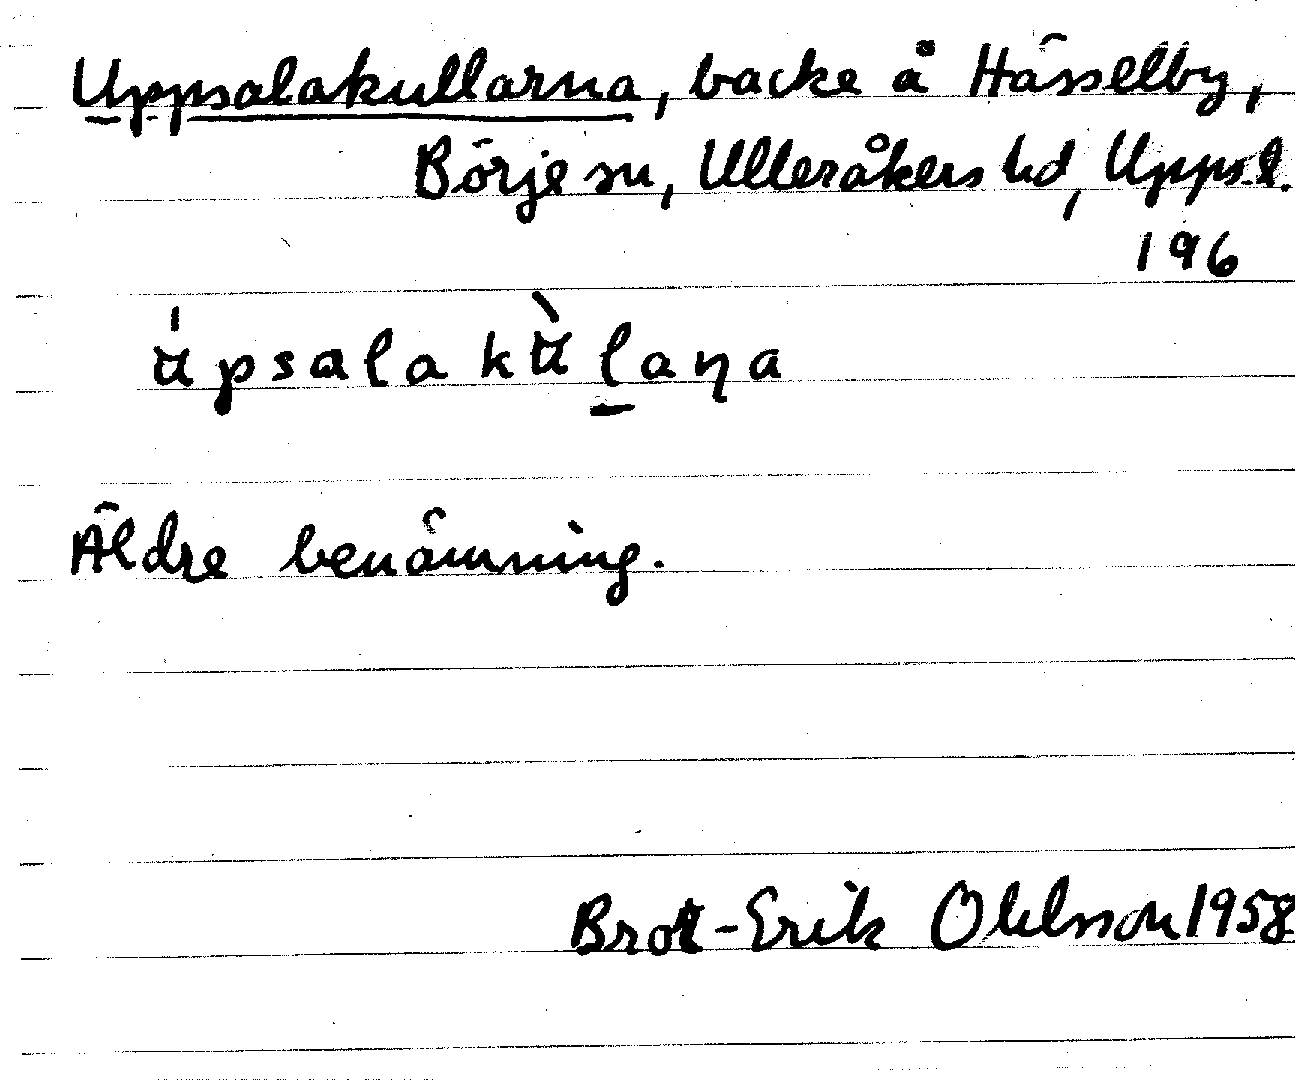 Uppsalakullarna, backe å Hässelby,
Börje sn, Ulleråkers hd, Uppsl.
196
úpsalakùlaṇa
Äldre benämning.
Brok-Erik Ohlsson 1958